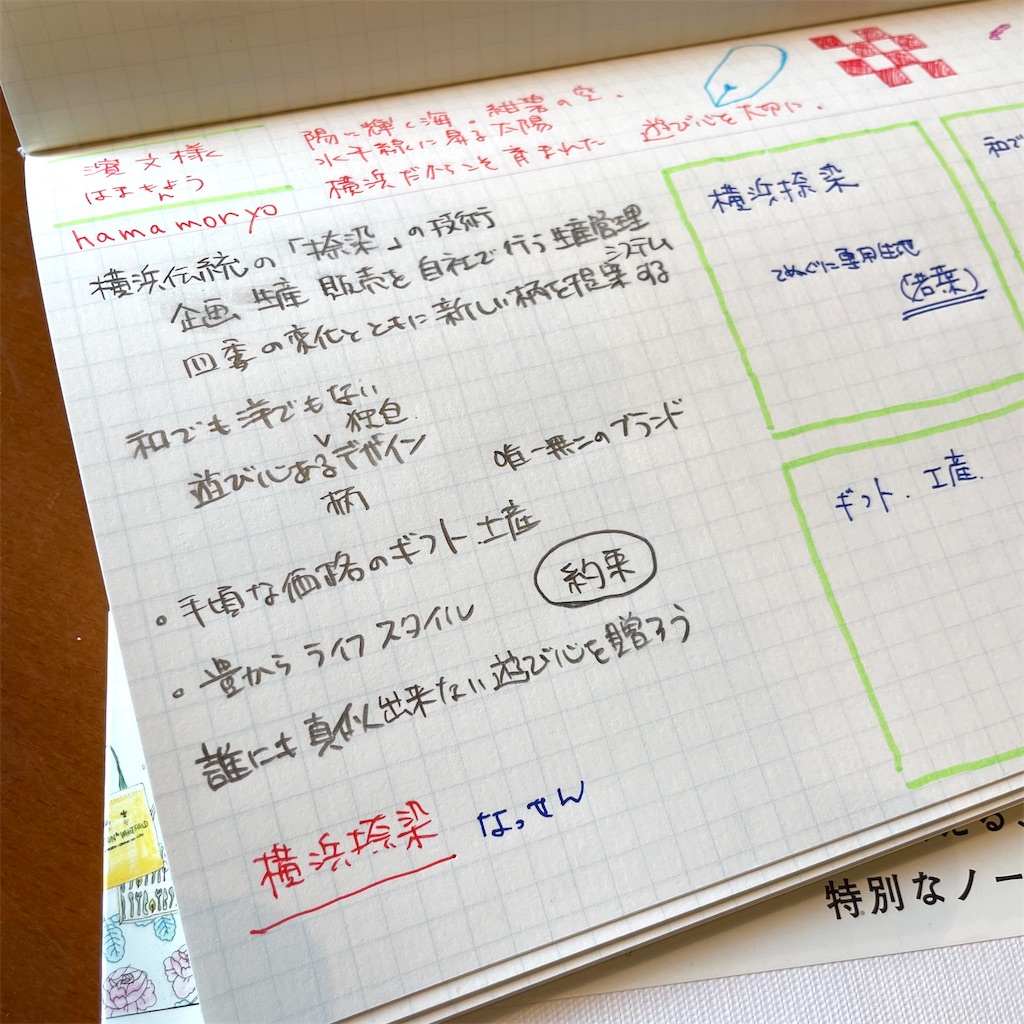 濱文様
はまもんよう
hamamonyo
陽に輝く海。紺碧の空。
水平線に昇る太陽
横浜だからこそ育まれた 遊び心を大切に。
横浜伝統の「捺染」の技術
企画、生産 販売を自社で行う生産管理
システム
四季の変化とともに新しい柄を提案する
和でも洋でもない
独自
遊び心あるデザイン
柄
唯一無二のブランド
・手頃な価格のギフト、土産
・豊かな ライフスタイル
約束
誰にも真似出来ない遊び心を贈ろう
横浜捺染 なっせん
横浜捺染
てぬぐい専用生地
(若葉)
和で
ギフト. 土産.
える、
特別なノー